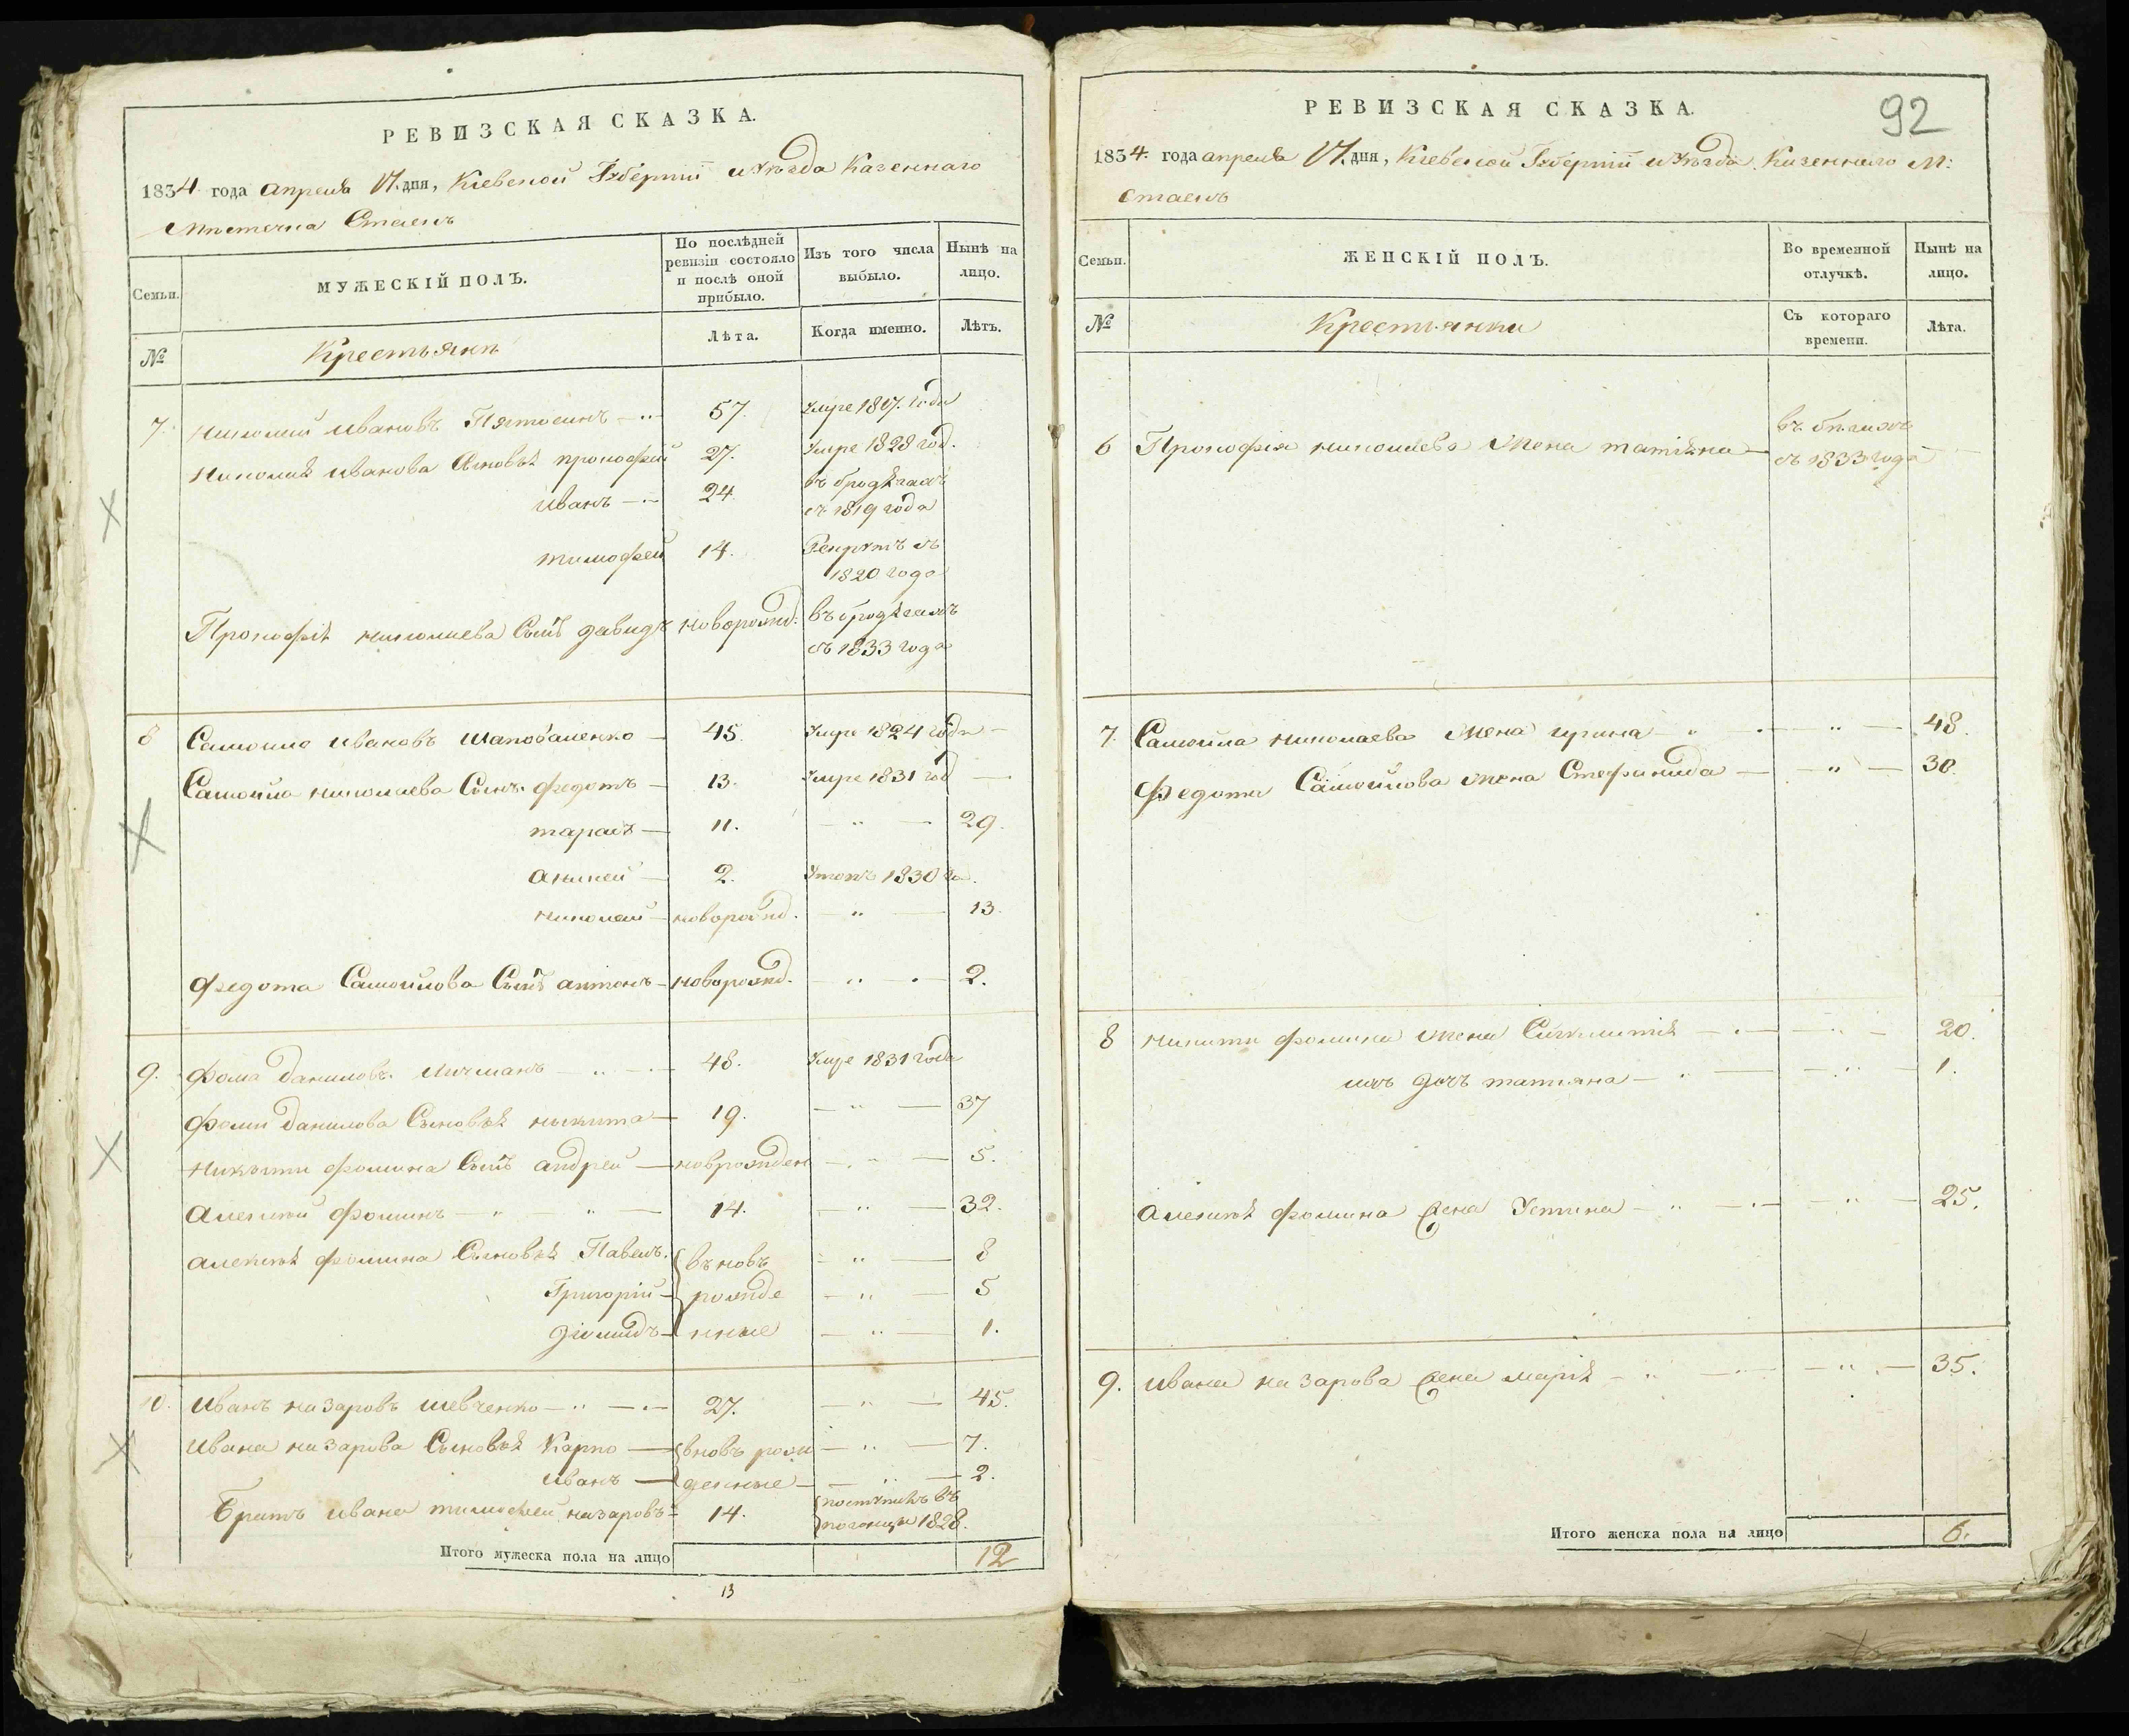 РЕВИЗСКАЯ СКАЗКА.
1834 года апреля 17 дня, Киевской Губернии и уезда Казеннаго
Местечка Стаекъ
Семьи.
МУЖЕСКІЙ ПОЛЪ.
По послѣдней ревизіи состояло и послѣ оной прибыло.
Изъ того числа выбыло.
Нынѣ на лицо.
№
Крестьяне
Лѣта.
Когда именно.
Лѣтъ.
7. Николай Ивановъ 57. Умре 1817. года
Николая Иванова Сыновья Прокофий 27. Умре 1828 год.
Иванъ 24. въ бродягахъ
съ 1819 года
тимофей 14. Рекрутъ съ
1820 года
Прокофія николаева Сынъ давидъ новорожд: въ бродягахъ
съ 1833 года
8 Самойло Ивановъ Шаповаленко 45. Умре 1824 года
Самойла николаева Сынъ федотъ 13. Умре 1831 год
тарасъ 11. 29.
2. 1830 го.
николай новорожд. 13.
федота Самойлова Сынъ антонъ новорожд. 2.
9. Фома даниловъ 48. Умре 1831 года
Фомы данилова Сыновья никита 19. 37
Никиты фомина Сынъ андрей новрожден 5.
алексей фоминъ 14. 32.
алексея фомина Сыновья Павелъ въновъ 8
Григорій рожде 5
диомидъ нные 1.
10. Иванъ назаровъ шевченко 27. 45.
Ивана назарова Сыновья Карпо вновъ рож 7.
Иванъ денные 2.
Братъ ивана тимофей назаровъ 14. поступилъ въ
погонцы 1828.
Итого мужеска пола на лицо 12
13
РЕВИЗСКАЯ СКАЗКА.
92
1834. года апреля 17. дня, Киевской Губерніи и уезда Казеннаго М:
Стаекъ
Семьи.
ЖЕНСКІЙ ПОЛЪ.
Во временной отлучкѣ.
Нынѣ на лицо.
№
Крестьянки
Съ котораго времени.
Лѣта.
6 Прокофія николаева жена татіяна въ бегахъ
съ 1833 года
7. Самойла николаева жена ирина 48.
Федота Самойлова жена Стефанида 30.
8 никиты фомина жена 20.
ихъ дочъ татияна 1.
алексея фомина жена Устина 25.
9. ивана назарова жена марія 35.
Итого женска пола на лицо 6.